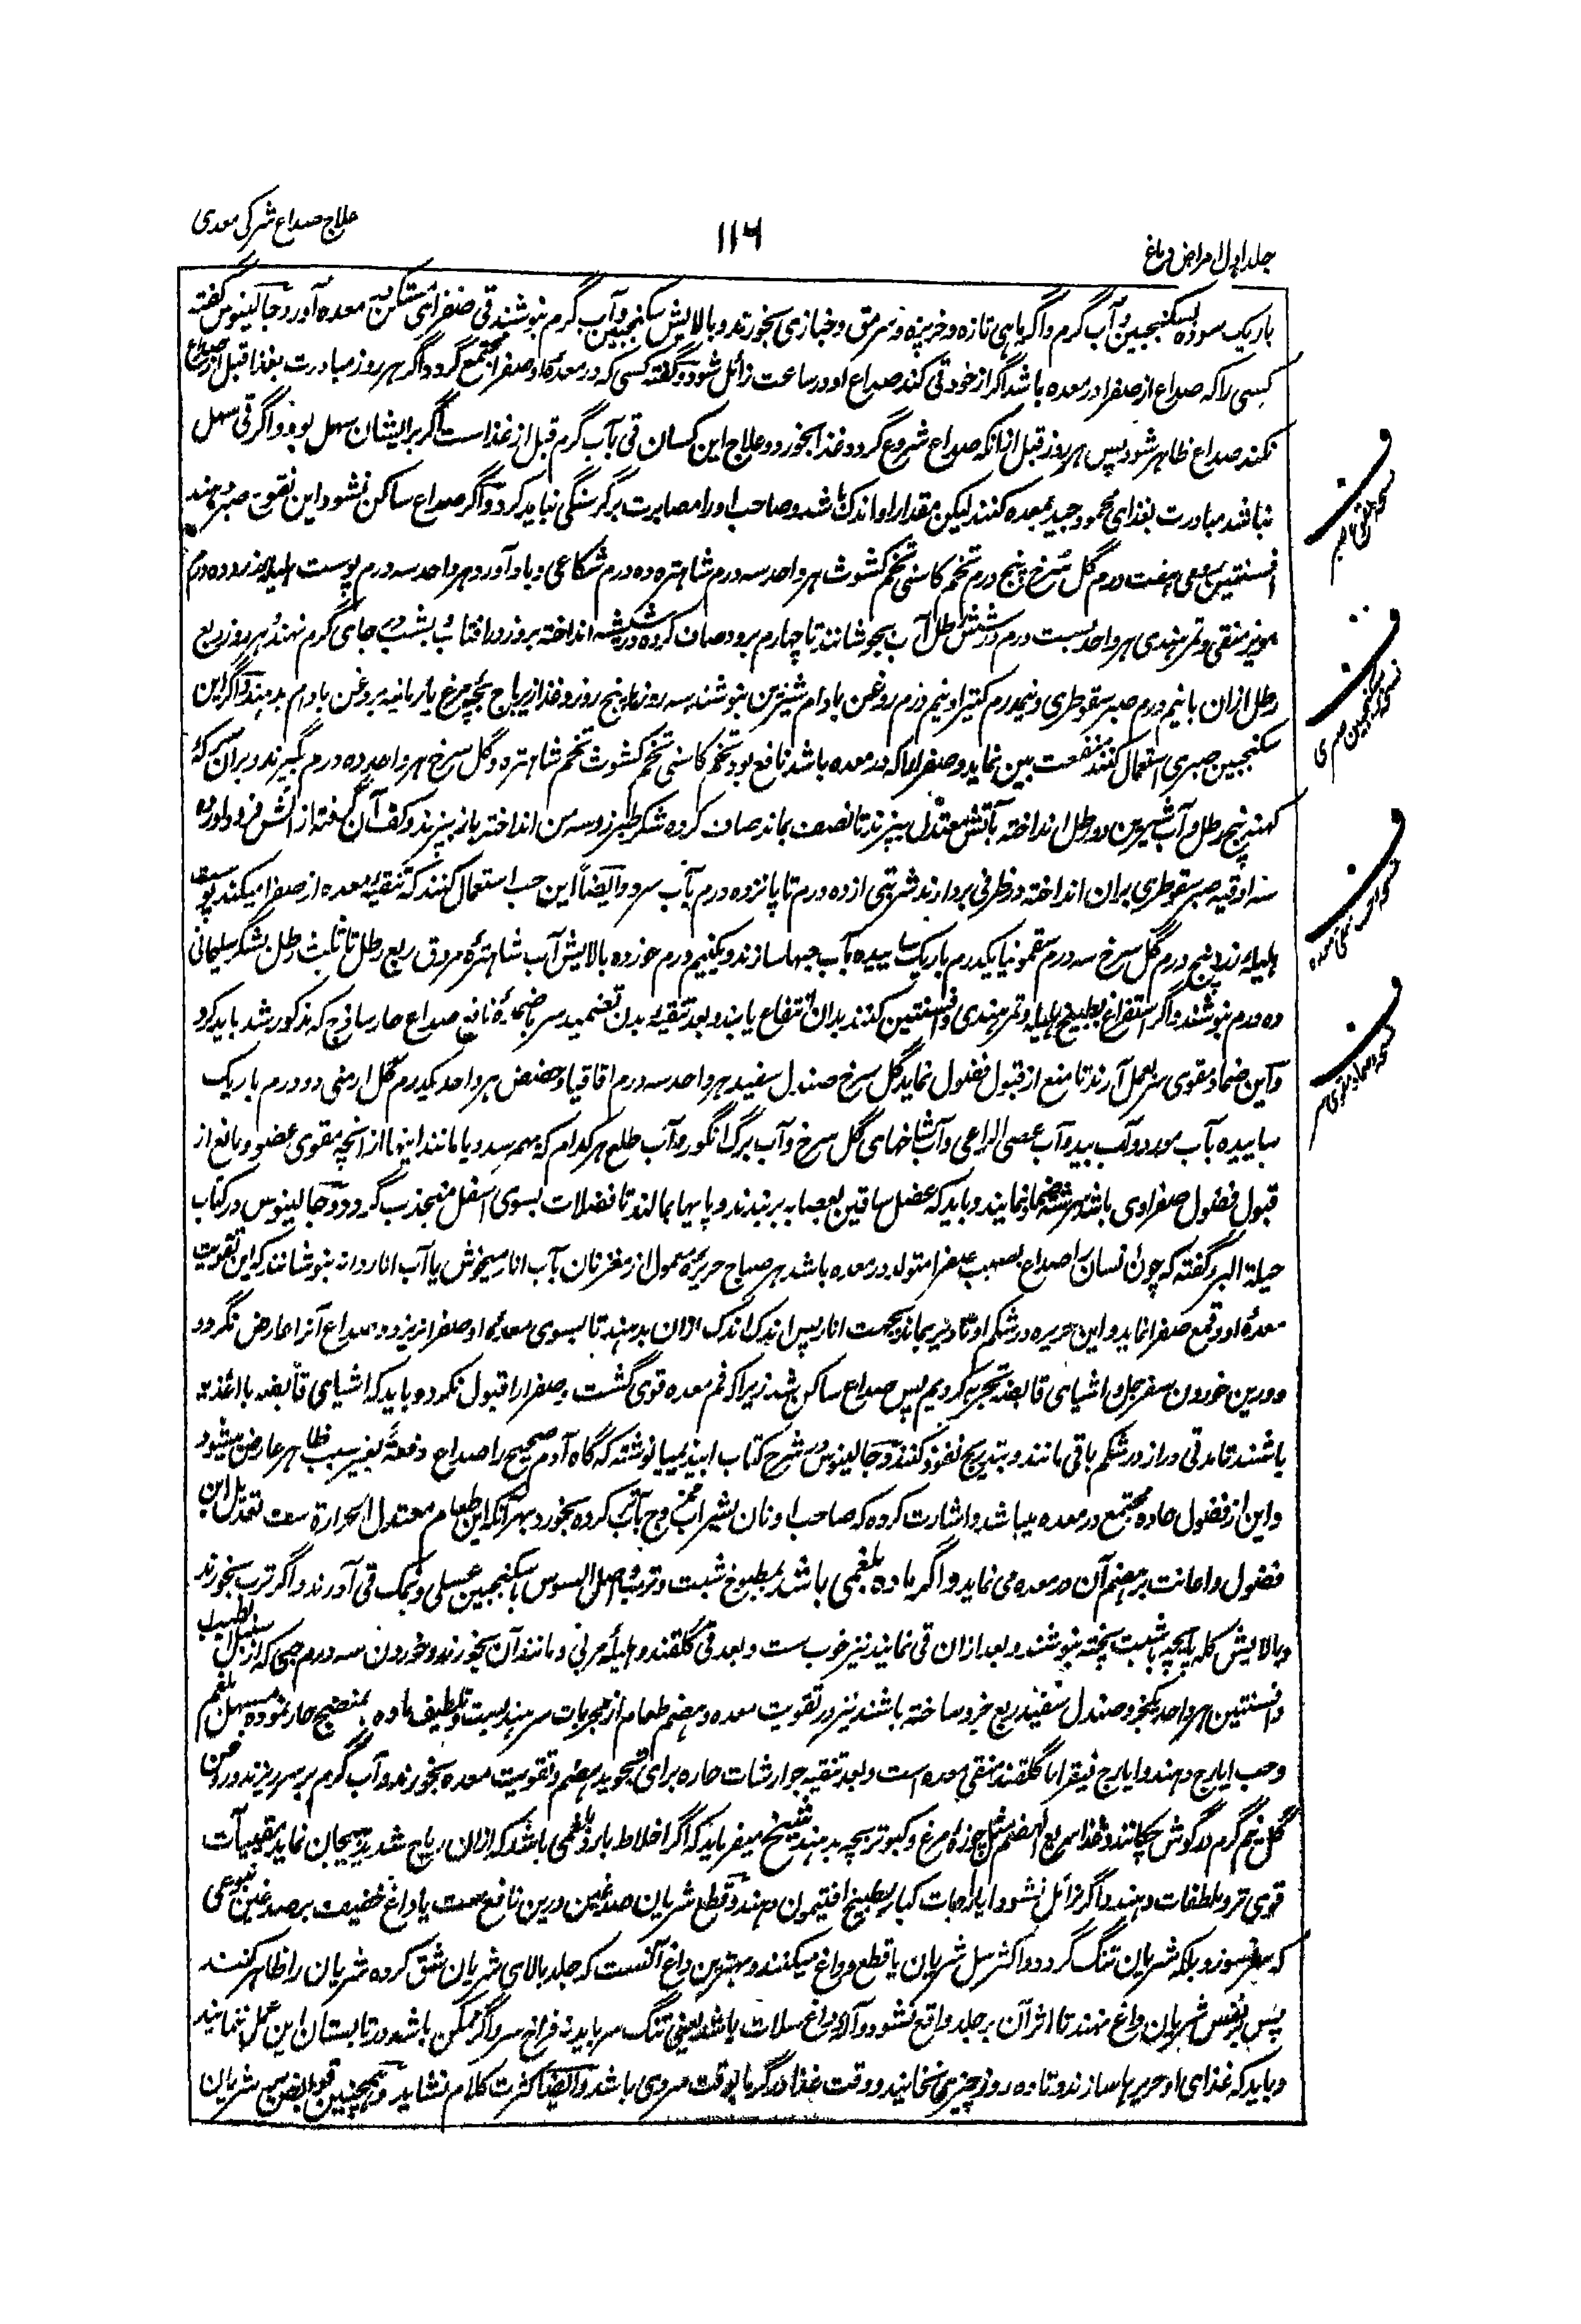 جلد اول امراض دماغ
۱۱۶
علاج صداع شرکی معدی
باریک سوده بسکنجبین و آب گرم و اگر ماهی تازه و خرپزه و سرمق و خبازی بخورند و بالایش سکنجبین و آب گرم بنوشند قی صفرای متمکن معده آورد و جالینوس گفته
کسی را که صداع از صفرا در معده باشد اگر از خود قی کند صداع او در ساعت زائل شود و گفته کسی که در معدۀ او صفرا مجتمع گردد اگر هر روز مبادرت بغذا قبل از صداع
نکند صداع ظاهر شود پس هر روز قبل ازانکه صداع شروع گردد غذا بخورد و علاج این کسان قی بآب گرم قبل از غذا است اگر بر ایشان سهل بود و اگر قی سهل
نباشد مبادرت بغذای محمود جید معده کنند لیکن مقدار او اندک باشد و صاحب او را مصابرت بر گرسنگی نباید کرد و اگر صداع ساکن نشود این نقوع صبر دهند
افسنتین رومی هفت درم گل سرخ پنج درم تخم کاسنی تخم کشوث هر واحد سه درم شاهتره ده درم شکاعی و بادآورد هر واحد سه درم پوست هلیله زرد ده درم
مویز منقی و تمرهندی هر واحد بست درم در شش رطل آب بجوشانند تا چهارم برود صاف کرده در شیشه انداخته بروز در آفتاب و بشب در جای گرم نهند هر روز ربع
رطل ازان با نیم درم صبر سقوطری و نیمدرم کتیرا و نیم درم روغن بادام شیرین بنوشند سه روز یا پنج روز و غذا زیرباج بچۀ مرغ یا رمانیه بروغن بادام بدهند و اگر این
سکنجبین صبری استعمال کنند منفعت بین نماید و صفرا را که در معده باشد نافع بود تخم کاسنی تخم کشوث تخم شاهتره و گل سرخ هر واحد ده درم بگیرند و بران سرکۀ
کهنه پنج رطل و آب شیرین دو رطل انداخته بآتش معتدل بپزند تا نصف بماند صاف کرده شکر طبرزد سه من انداخته باز بپزند و کف آن گرفته از آتش فرود آورده
سه اوقیه صبر سقوطری بران انداخته در ظرفی بردارند شربتی از ده درم تا پانزده درم بآب سرد و ایضاً این حب استعمال کنند که تنقیه معده از صفرا میکند پوست
هلیله زرد پنج درم گل سرخ سه درم سقمونیا یکدرم باریک ساییده بآب حبها سازند و یکنیم درم خورده بالایش آب شاهترۀ مروق ربع رطل تا ثلث رطل بشکر سلیمانی
ده درم بنوشند و اگر استفراغ بطبیخ هلیله و تمرهندی و افسنتین کنند بدان انتفاع یابند و بعد تنقیه بدن تضمید سر باضمدۀ نافع صداع حار ساذج که مذکور شد باید کرد
و این ضماد مقوی سر بعمل آرند تا منع از قبول فضول نماید گل سرخ صندل سفید هر واحد سه درم اقاقیا و حضض هر واحد یکدرم گل ارمنی دو درم باریک
ساییده بآب مورد و آب بید و آب عصی الراعی و آب شاخهای گل سرخ و آب برگ انگور و آب طلع هر کدام که بهم رسد و یا مانند اینها از انچه مقوی عضو و مانع از
قبول فضول صفراوی باشد سرشته ضماد نمایند و باید که عضل ساقین بعصابه بربندند و پایها بمالند تا فضلات بسوی اسفل منجذب گردد و جالینوس در کتاب
حیلة البرء گفته که چون انسان را صداع بسبب صفرا متولد در معده باشد هر صباح حریرۀ معمول از مغز نان بآب انار میخوش یا آب انار دانه بنوشانند که این تقویت
معدۀ او و قمع صفرا نماید و این حریره در شکم او تا دیر بماند بجهت انار پس اندک اندک ازان بدهند تا بسوی معدۀ او صفرا نریزد و صداع آنرا عارض نگردد
و درین خوردن سفرجل و اشیای قابضه تجربه کردیم پس صداع ساکن شد زیرا که فم معده قوی گشت و صفرا را قبول نکرد و باید که اشیای قابضه با اغذیه
باشند تا مدتی دراز در شکم باقی مانند و بتدریج نفوذ کنند و جالینوس در شرح کتاب ابیذیمیا نوشته که گاه آدم صحیح را صداع دفعةً بغیر سبب ظاهر عارض میشود
و این از فضول حاده مجتمع در معده میباشد و اشارت کرده که صاحب او نان بشراب ممزوج بآب تر کرده بخورد بهر آنکه این طعام معتدل الحرارة ست تعدیل این
فضول و اعانت بر هضم آن در معده می نماید و اگر ماده بلغمی باشد بمطبوخ شبت و ترب و اصل السوس با سکنجبین عسلی و نمک قی آورند و اگر ترب بخورند
و بالایش کله پاچه با شبت پخته بنوشند و بعد ازان قی نمایند نیز خوب ست و بعد قی گلقند و هلیلۀ مربی و مانند آن بخورند و خوردن سه درم حبی که از سنبل الطیب
و افسنتین هر واحد یکجزو صندل سفید ربع جزو ساخته باشند نیز در تقویت معده و هضم طعام از مجربات سرهندیست و تلطیف ماده بمنضج حار نموده مسهل بلغم
و حب ایارج دهند و ایارج فیقرا با گلقند منقی معده است و بعد تنقیه جوارشات حاره برای تجوید هضم و تقویت معده بخورند و آب گرم بر سر ریزند و روغن
گل نیم گرم در گوش چکانند و غذا سریع الهضم مثل چوزۀ مرغ و کبوتر بچه بدهند شیخ میفرماید که اگر اخلاط بارد بلغمی باشد که ازان ریاح شدید هیجان نماید مقییات
قوی تر و ملطفات دهند و اگر زائل نشود ایارجات کبار بطبیخ افتیمون دهند و قطع شریان صدغین درین نافع ست یا داغ خفیف بر صدغین بنوعی
که نسوزد بلکه شریان تنگ گردد و اکثر سل شریان یا قطع و داغ میکنند و بهترین داغ آنست که جلد بالای شریان شق کرده شریان را ظاهر کنند
پس بر نفس شریان داغ نهند تا اثر آن بر جلد واقع نشود و آلۀ داغ سلات باشد یعنی تنگ سر باید نه فراخ سر و اگر ممکن باشد در تابستان این عمل نمایند
و باید که غذای او حریرها سازند و تا ده روز چیزی نخایند و وقت غذا در گرما بوقت سردی باشد و ایضاً کثرت کلام نشاید و همچنین قوابض شریان
ن
ن
نسخۀ سکنجبین صبری
ن
ن